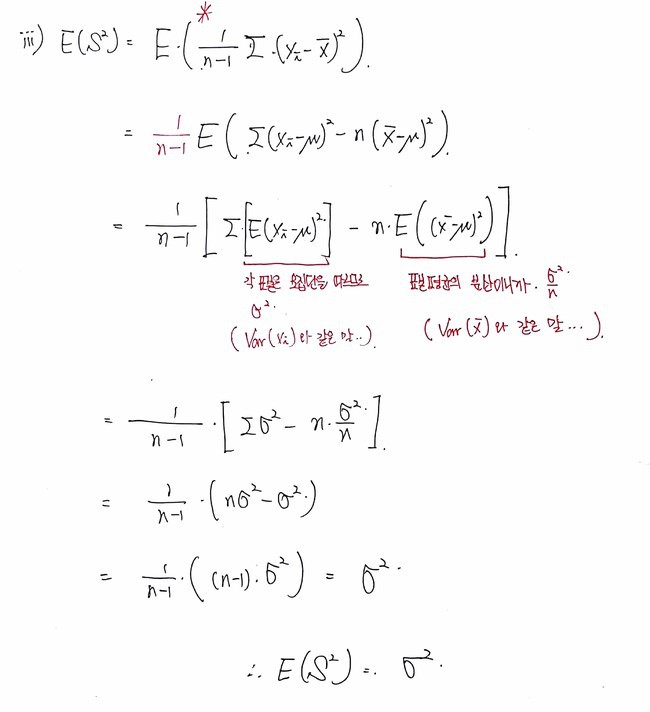 *
iii) E(S²) = E·( 1/(n-1) Σ·(xᵢ - x̄)² ).
= 1/(n-1) E( Σ(xᵢ-μ)² - n(x̄-μ)² )
= 1/(n-1) [ Σ[E(xᵢ-μ)²] - n·E((x̄-μ)²) ].
각 표본은 모집단을 따르므로 표본평균의 분산이니까· σ²/n
σ².
(Var(xᵢ)와 같은 말..). (Var(x̄)와 같은 말...).
= 1/(n-1) ·[ Σσ² - n·σ²/n ].
= 1/(n-1) ·(nσ² - σ²)
= 1/(n-1)·( (n-1)·σ² ) = σ².
∴ E(S²) = σ².